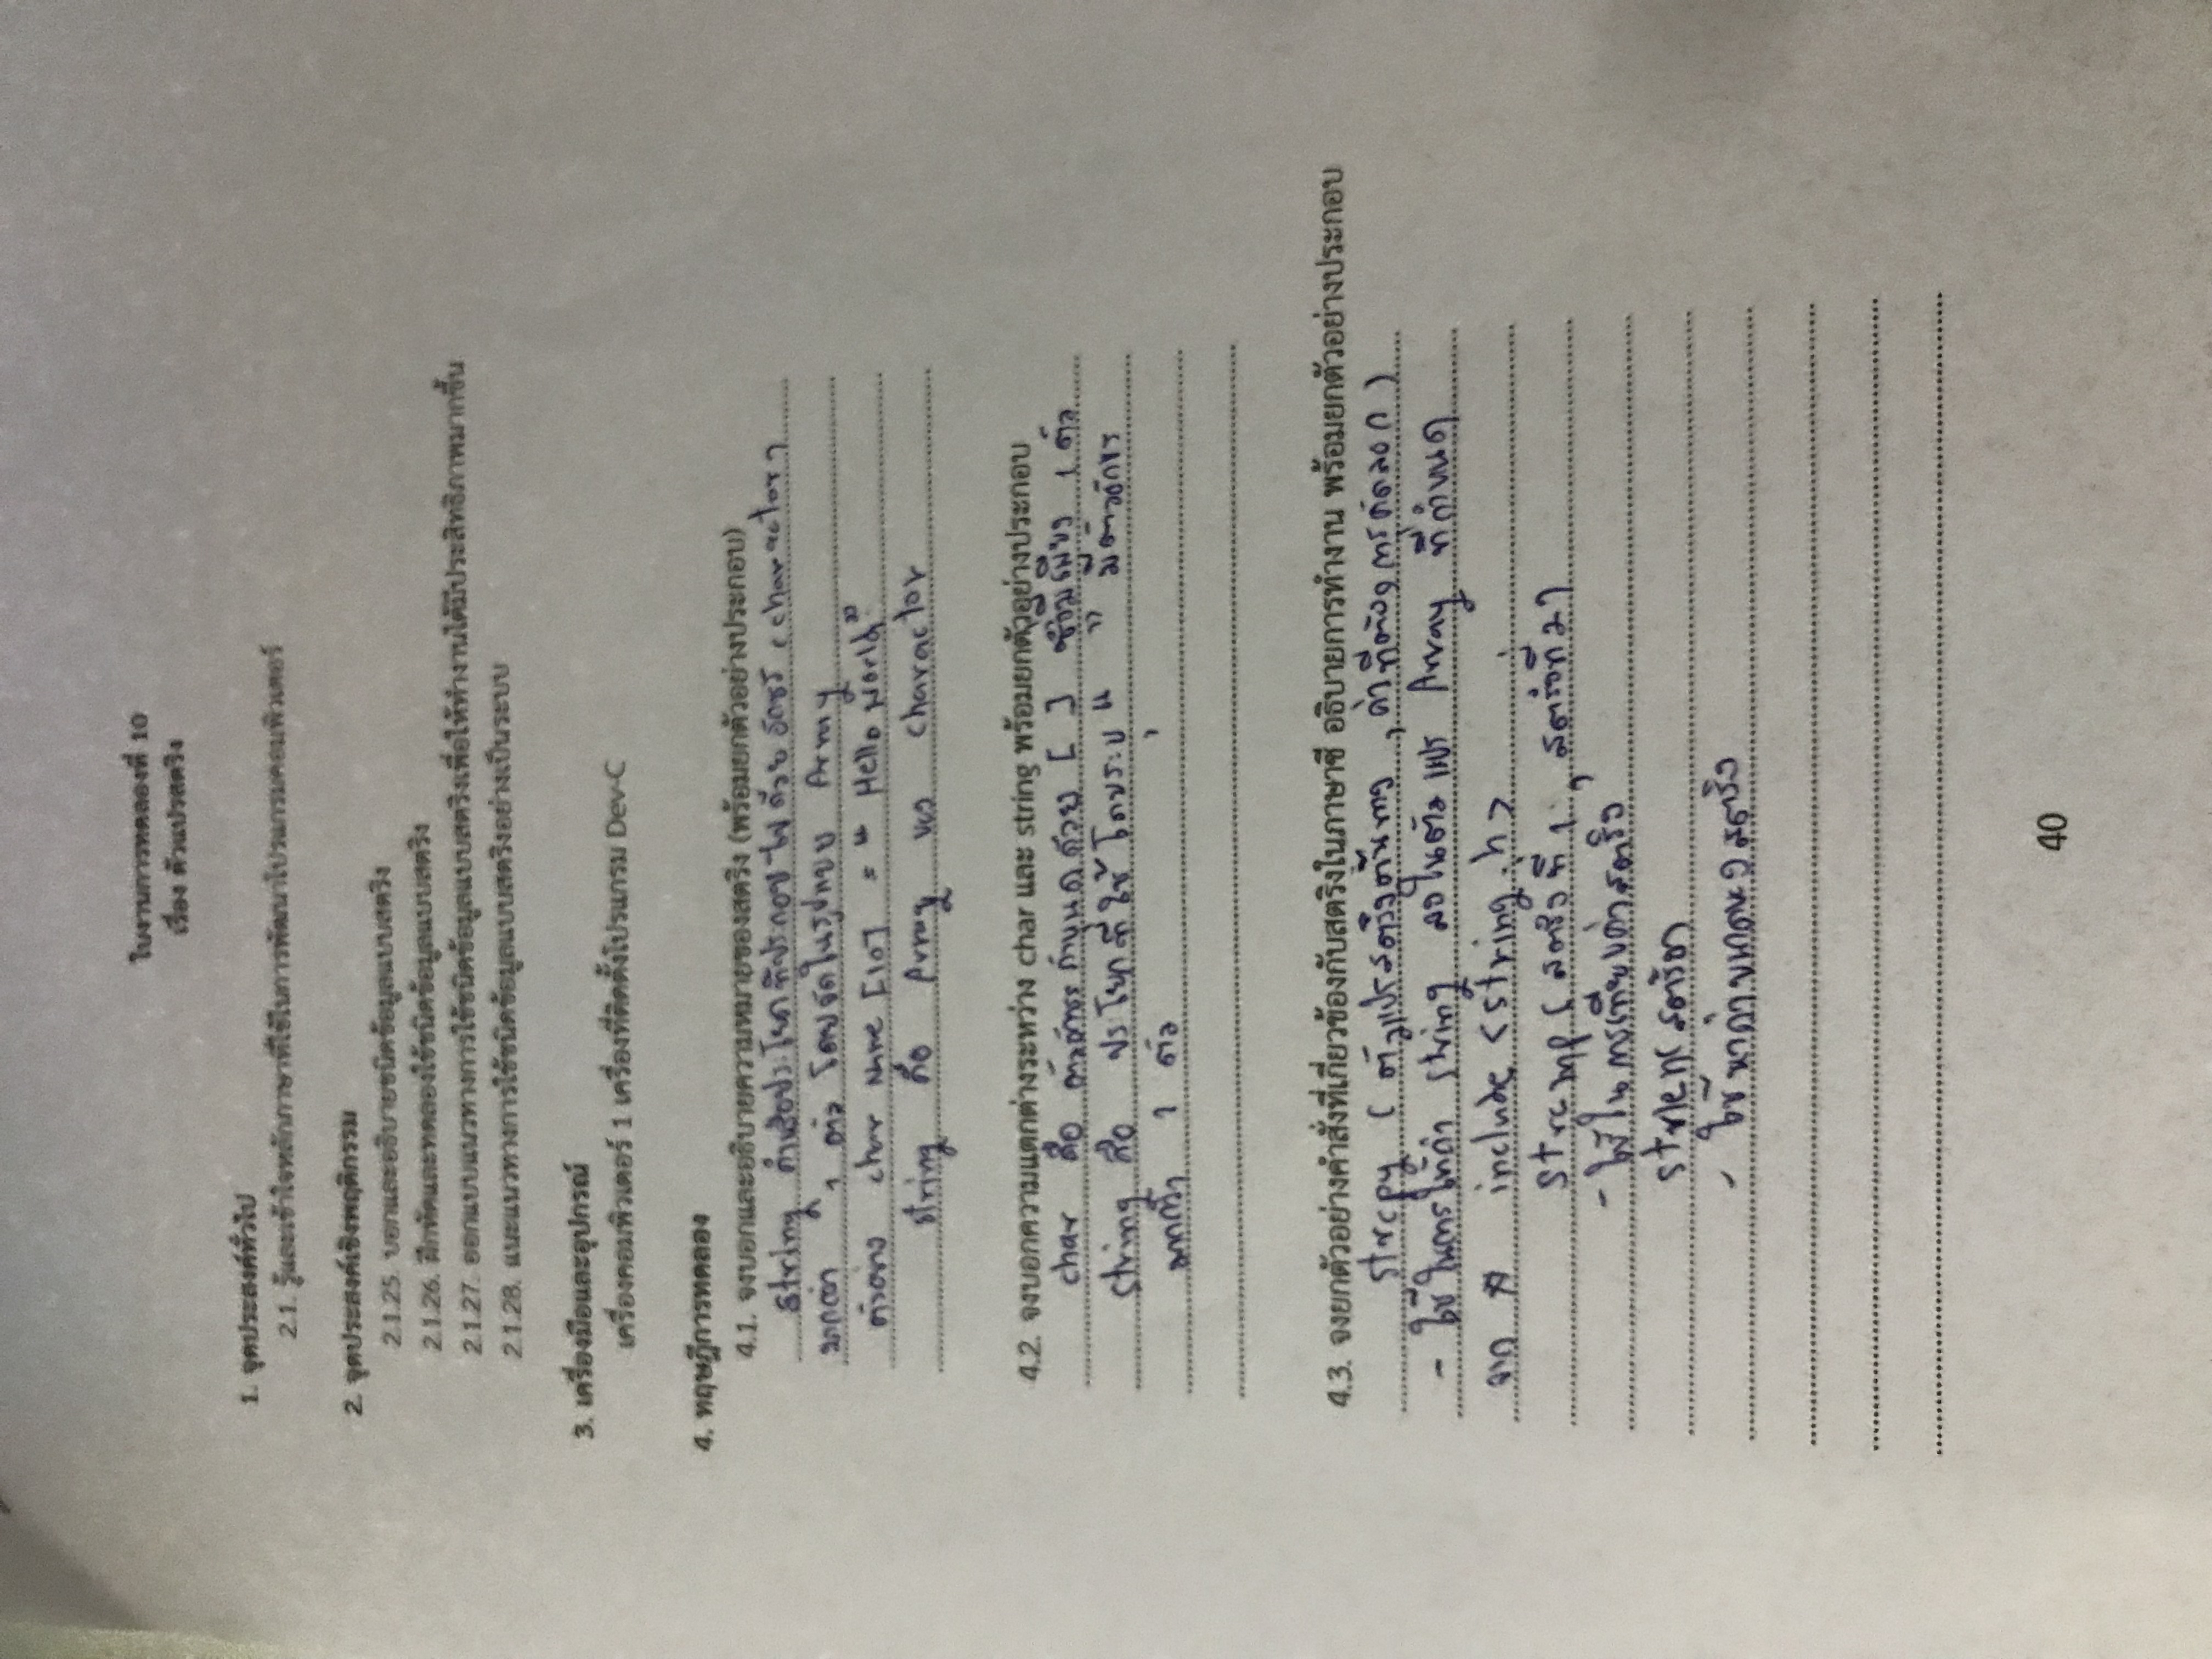 ใบงานการทดลองที่ 10
เรื่อง ตัวแปรสตริง
1. จุดประสงค์ทั่วไป
2.1. รู้และเข้าใจหลักภาษาที่ใช้ในการพัฒนาโปรแกรมคอมพิวเตอร์
2. จุดประสงค์เชิงพฤติกรรม
2.1.25. บอกและอธิบายชนิดข้อมูลแบบสตริง
2.1.26. ฝึกหัดและทดลองใช้ชนิดข้อมูลแบบสตริง
2.1.27. ออกแบบแนวทางการใช้ชนิดข้อมูลแบบสตริงเพื่อให้ทำงานได้มีประสิทธิภาพมากขึ้น
2.1.28. แนะแนวทางการใช้ชนิดข้อมูลแบบสตริงอย่างเป็นระบบ
3. เครื่องมือและอุปกรณ์
เครื่องคอมพิวเตอร์ 1 เครื่องที่ติดตั้งโปรแกรม Dev-C
4. ทฤษฎีการทดลอง
4.1. จงบอกและอธิบายความหมายของสตริง (พร้อมยกตัวอย่างประกอบ)
String คำหรือประโยคที่ประกอบไปด้วย อักขร (charactor)
มากกว่า 1 ตัว โดยจัดในรูปแบบ Array
ตัวอย่าง char Name [10] = " Hello World"
string คือ Array ของ charactor
4.2. จงบอกความแตกต่างระหว่าง char และ string พร้อมยกตัวอย่างประกอบ
char คือ ตัวอักขระกำหนดด้วย [ ] ซึ่งมีเพียง 1 ตัว
string คือ ประโยคที่ใช้ โดยระบุ " " มีตัวอักขร
มากกว่า 1 ตัว
4.3. จงยกตัวอย่างคำสั่งที่เกี่ยวข้องกับสตริงในภาษาซี อธิบายการทำงาน พร้อมยกตัวอย่างประกอบ
strcpy ( ตัวแปรสตริงต้นทาง , ค่าที่ต้องการคัดลอก )
- ใช้ในการให้ค่า string ลงในตัวแปร Array ที่กำหนด
จาก # include <string.h>
strcmp( สตริงที่ 1 , สตริงที่ 2)
- ใช้ในการเทียบค่าสตริง
strlen( สตริง)
- ใช้หาค่าขนาดของสตริง
40